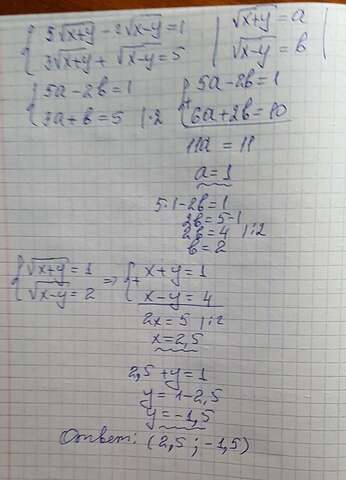 {5√x+y - 2√x-y = 1 | √x+y = a |
{3√x+y + √x-y = 5 | √x-y = b |
{5a-2b=1 {5a-2b=1
{3a+b=5 |·2 {6a+2b=10
11a = 11
a=1
5·1-2b=1
2b=5-1
2b=4 |:2
b=2
{√x+y = 1 => {x+y=1
{√x-y = 2 {x-y=4
2x=5 |:2
x=2,5
2,5+y=1
y=1-2,5
y=-1,5
Ответ: (2,5 ; -1,5)